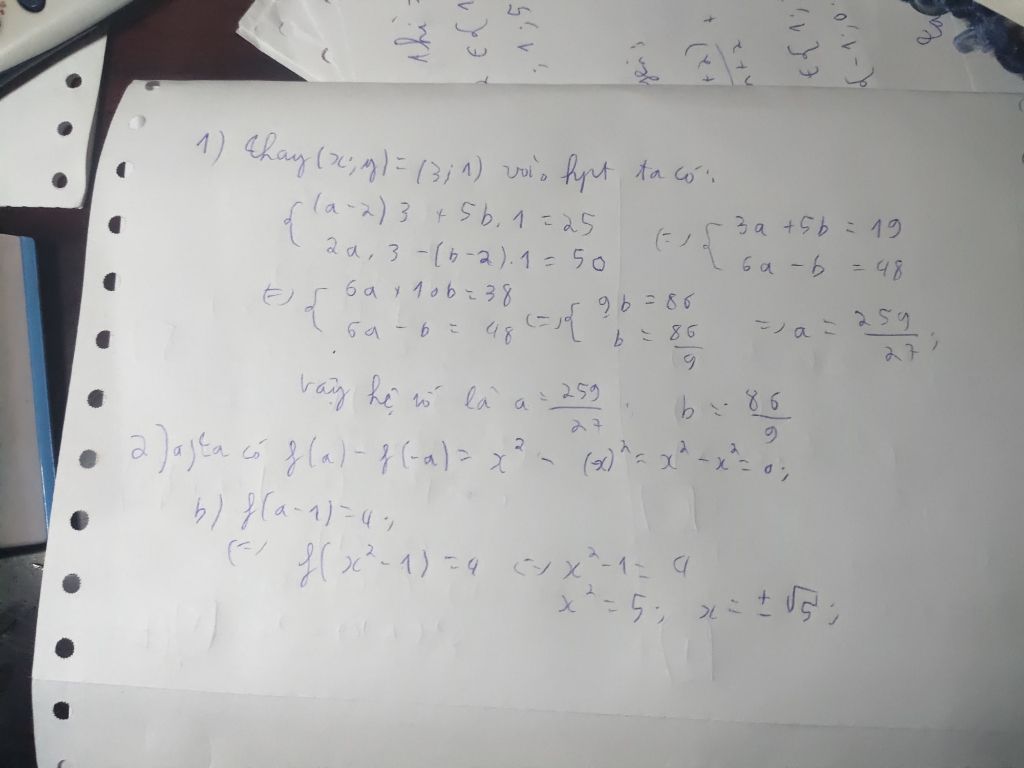 1) Thay (x; y) = (3; 1) vào hpt ta có:
{ (a-2) 3 + 5b. 1 = 25
2a. 3 - (b-2). 1 = 50
(=) { 3a + 5b = 19
6a - b = 48
(=) { 6a + 10b = 38
6a - b = 48
(=) { 9b = 86
b = 86/9
=) a = 259/27;
Vậy hệ số là a = 259/27. b = 86/9
2) a) ta có f(a) - f(-a) = x² - (-x)² = x² - x² = 0;
b) f(a-1) = 4;
(=) f(x² - 1) = 4 (=) x² - 1 = 4
x² = 5; x = ± √5;